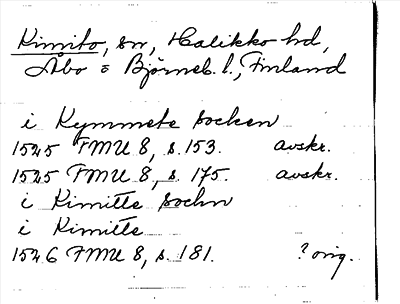 Kimito, sn, Halikko hd,
Åbo o Björneb. l., Finland
i Kymmete socken
1525 FMU 8, s. 153. avskr.
1525 FMU 8, s. 175. avskr.
i Kimitte sochn
i Kimitte
1526 FMU 8, s. 181. ? orig.